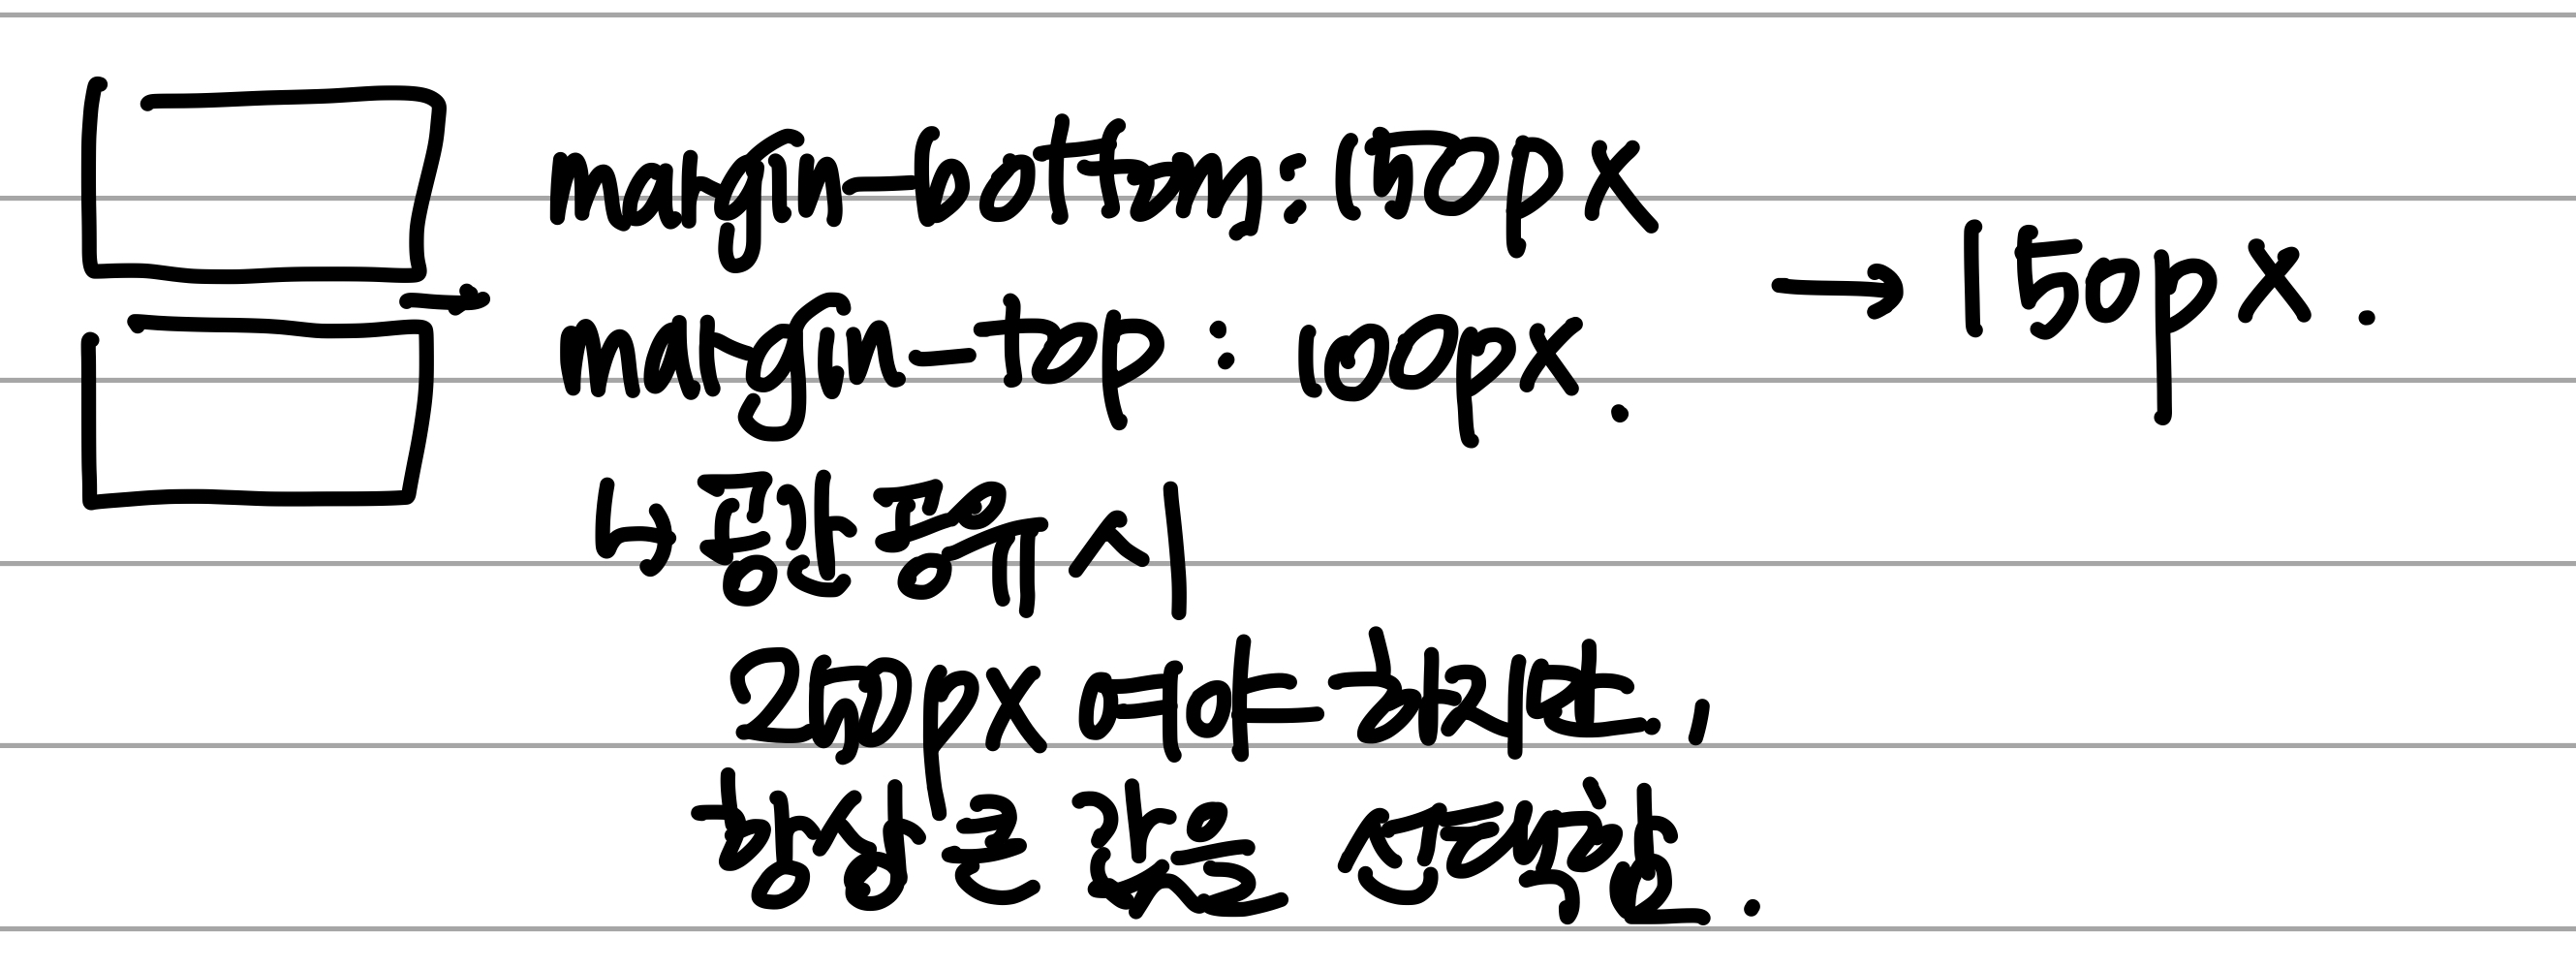 margin-bottom: 150px
→ 150px.
margin-top : 100px.
↳ 공간 공유시
250px 여야 하지만,
항상 큰 값을 선택함.